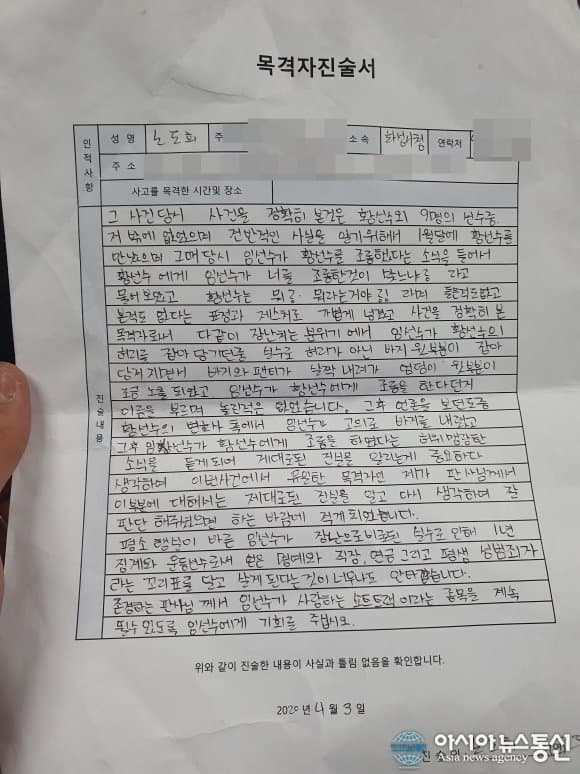 목격자진술서
인적사항
성 명 노도희 주 소 속 화성시청 연락처
주 소
사고를 목격한 시간및 장소
진술내용
그 사건당시 사건을 정확히 본것은 황선수외 9명의 선수중
저 밖에 없었으며 전반적인 사실을 알기위해서 1월달에 황선수를
만났으며 그때당시 임선수가 황선수를 조롱했다는 소식을 듣에서
황선수 에게 임선수가 너를 조롱한것이 맞느냐고 라고
물어보았고 황선수는 뭐라는거야 라며 들은적도없고
본적도 없다는 표정과 제스처로 가볍게 넘겼고 사건을 정확히 본
목격자로서 다같이 장난치는 분위기에서 임선수가 황선수의
허리를 잡아 당기던중 실수로 허리가 아닌 바지 윗부분이 잡아
당겨 지면서 바지와 팬티가 살짝 내려가 엉덩이 윗부분이
조금 노출 되었고 임선수가 황선수에게 조롱을 한다던지
이름을 부르며 놀린적은 없었습니다. 그후 언론을 보던도중
황선수의 변호사 측에서 임선수가 고의로 바지를 내렸고
그후 임선수가 황선수에게 조롱을 하였다는 허위 맹랑한
소식을 듣게되어 제대로된 진실을 알리는게 중요하다
생각하여 이번사건에서 유일한 목격자인 제가 판사님께서
이부분에 대해서는 제대로된 진실을 알고 다시 생각하여 잘
판단 해주셨으면 하는 바람에 적게 되었습니다.
평소 행실이 바른 임선수가 장난으로 비롯된 실수로 인해 1년
징계와 운동선수로서 얻은 명예와 직장, 연금 그리고 평생 성범죄자
라는 꼬리표를 달고 살게 된다는것이 너무나도 안타깝습니다.
존경하는 판사님 께서 임선수가 사랑하는 쇼트트랙 이라는 종목을 계속
할수 있도록 임선수에게 기회를 주십시오.
위와 같이 진술한 내용이 사실과 틀림 없음을 확인합니다.
2020 년 4 월 3 일
진 술 인
아시아뉴스통신
Asia news agency